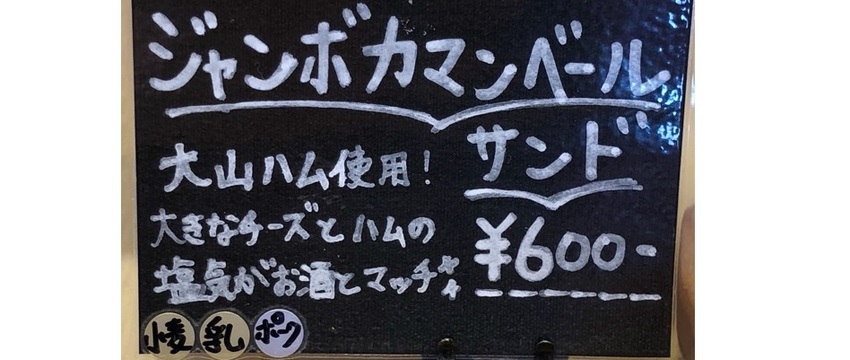 ジャンボカマンベール
サンド
大山ハム使用!
大きなチーズとハムの
塩気がお酒とマッチ
¥600-
小麦 乳 ポーク